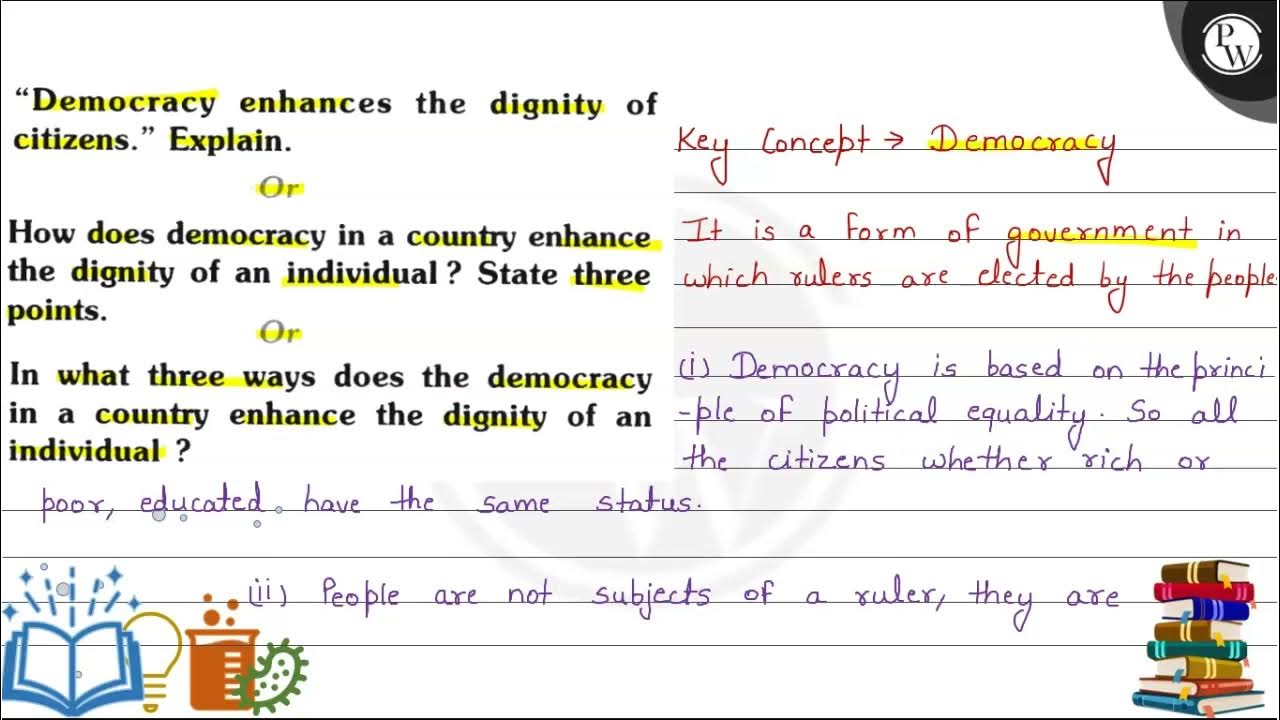 PW
“Democracy enhances the dignity of
citizens.” Explain.
Or
How does democracy in a country enhance
the dignity of an individual ? State three
points.
Or
In what three ways does the democracy
in a country enhance the dignity of an
individual ?
Key Concept → Democracy
It is a form of government in
which rulers are elected by the people
(i) Democracy is based on the princi
-ple of political equality. So all
the citizens whether rich or
poor, educated have the same status.
(ii) People are not subjects of a ruler, they are